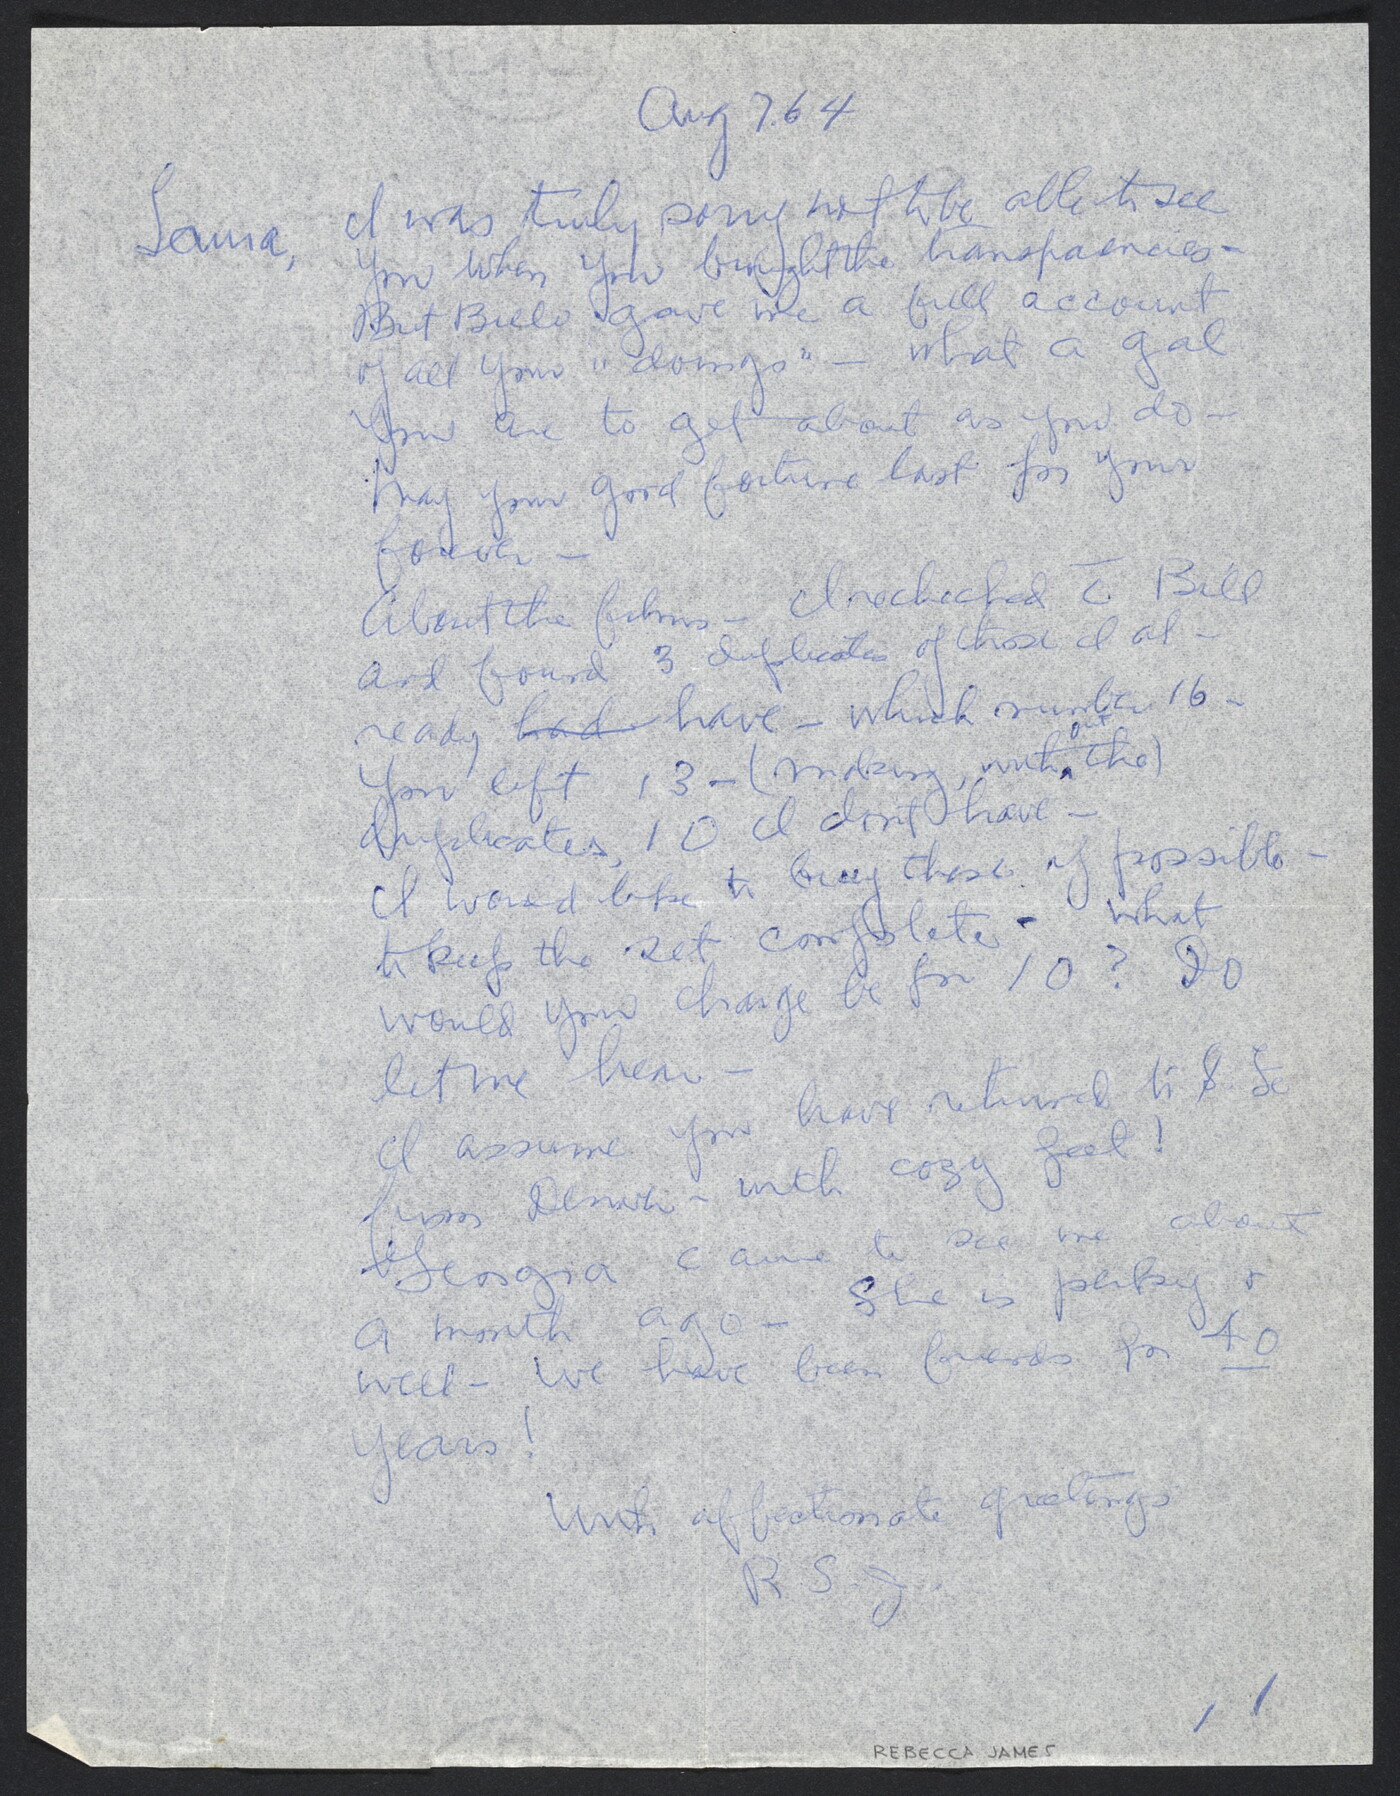 Aug 7. 64
Laura, I was truly sorry not to be able to see
you when you brought the transpaencies -
But Bill gave me a full account
of all your "doings" - what a gal
you are to get about as you do -
may your good fortune last for your
forever -
About the films - I rechecked c̄ Bill
and found 3 duplicates of those I al -
ready had have - which number 16 -
You left 13 - (making, without the)
duplicates, 10 I don't have -
I would like to buy these if possible -
to keep the set complete - what
would you charge be for 10? Do
let me hear -
I assume you have returned to S. Fe
from Denver - with cozy feet!
Georgia came to see me about
a month ago - She is perky &
well - We have been friends for 40
years!
With affectionate greetings
R. S. J.
REBECCA JAMES